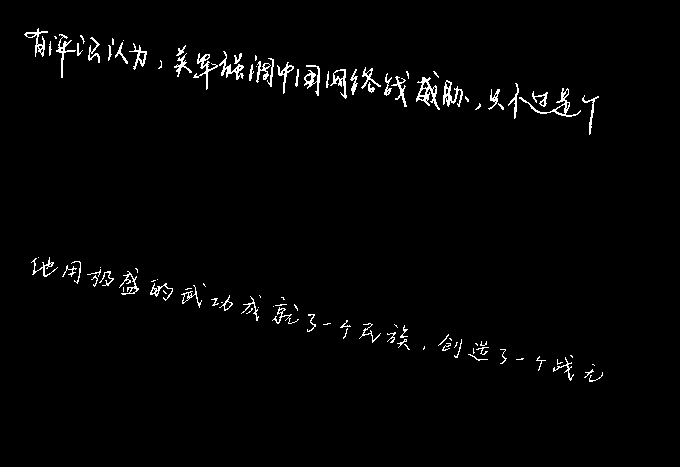 有评论认为，美军强调中国网络战威胁，只不过是个
他用极盛的武功成就了一个民族，创造了一个战无